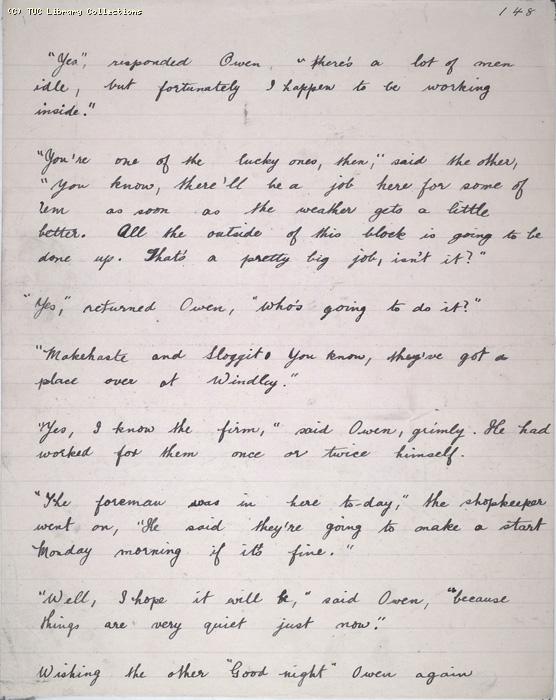 (C) TUC Library Collections
148
"Yes", responded Owen, "there's a lot of men
idle, but fortunately I happen to be working
inside."
"You're one of the lucky ones, then," said the other,
"You know, there'll be a job here for some of
'em as soon as the weather gets a little
better. All the outside of this block is going to be
done up. That's a pretty big job, isn't it?"
"Yes," returned Owen, "who's going to do it?"
"Makehaste and Sloggit. You know, they've got a
place over at Windley."
"Yes, I know the firm," said Owen, grimly. He had
worked for them once or twice himself.
"The foreman was in here to-day," the shopkeeper
went on, "He said they're going to make a start
Monday morning if it's fine."
"Well, I hope it will be," said Owen, "because
things are very quiet just now."
Wishing the other "Good night" Owen again